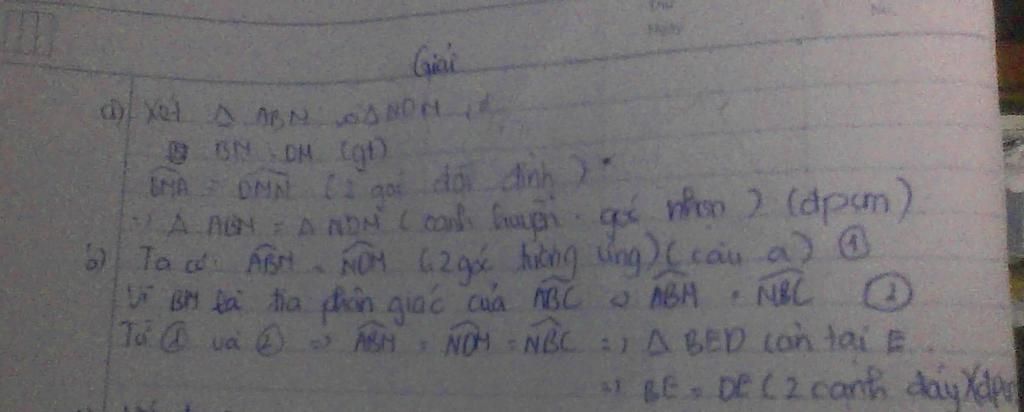 Giải
a) Xét Δ ABM và Δ NDM, có
BM = DM (gt)
BMA = DMN (2 góc đối đỉnh)
=> Δ ABM = Δ NDM (cạnh huyền - góc nhọn) (đpcm)
b) Ta có: ABM = NDM (2 góc tương ứng) (câu a) ①
Vì BM là tia phân giác của ABC => ABM = NBC ②
Từ ① và ② => ABM = NDM = NBC => Δ BED cân tại E
=> BE = DE (2 cạnh đáy) (đpcm